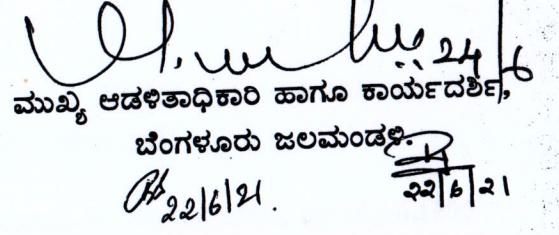 24/6
ಮುಖ್ಯ ಆಡಳಿತಾಧಿಕಾರಿ ಹಾಗೂ ಕಾರ್ಯದರ್ಶಿ,
ಬೆಂಗಳೂರು ಜಲಮಂಡಳಿ.
22/6/21.
22/6/21